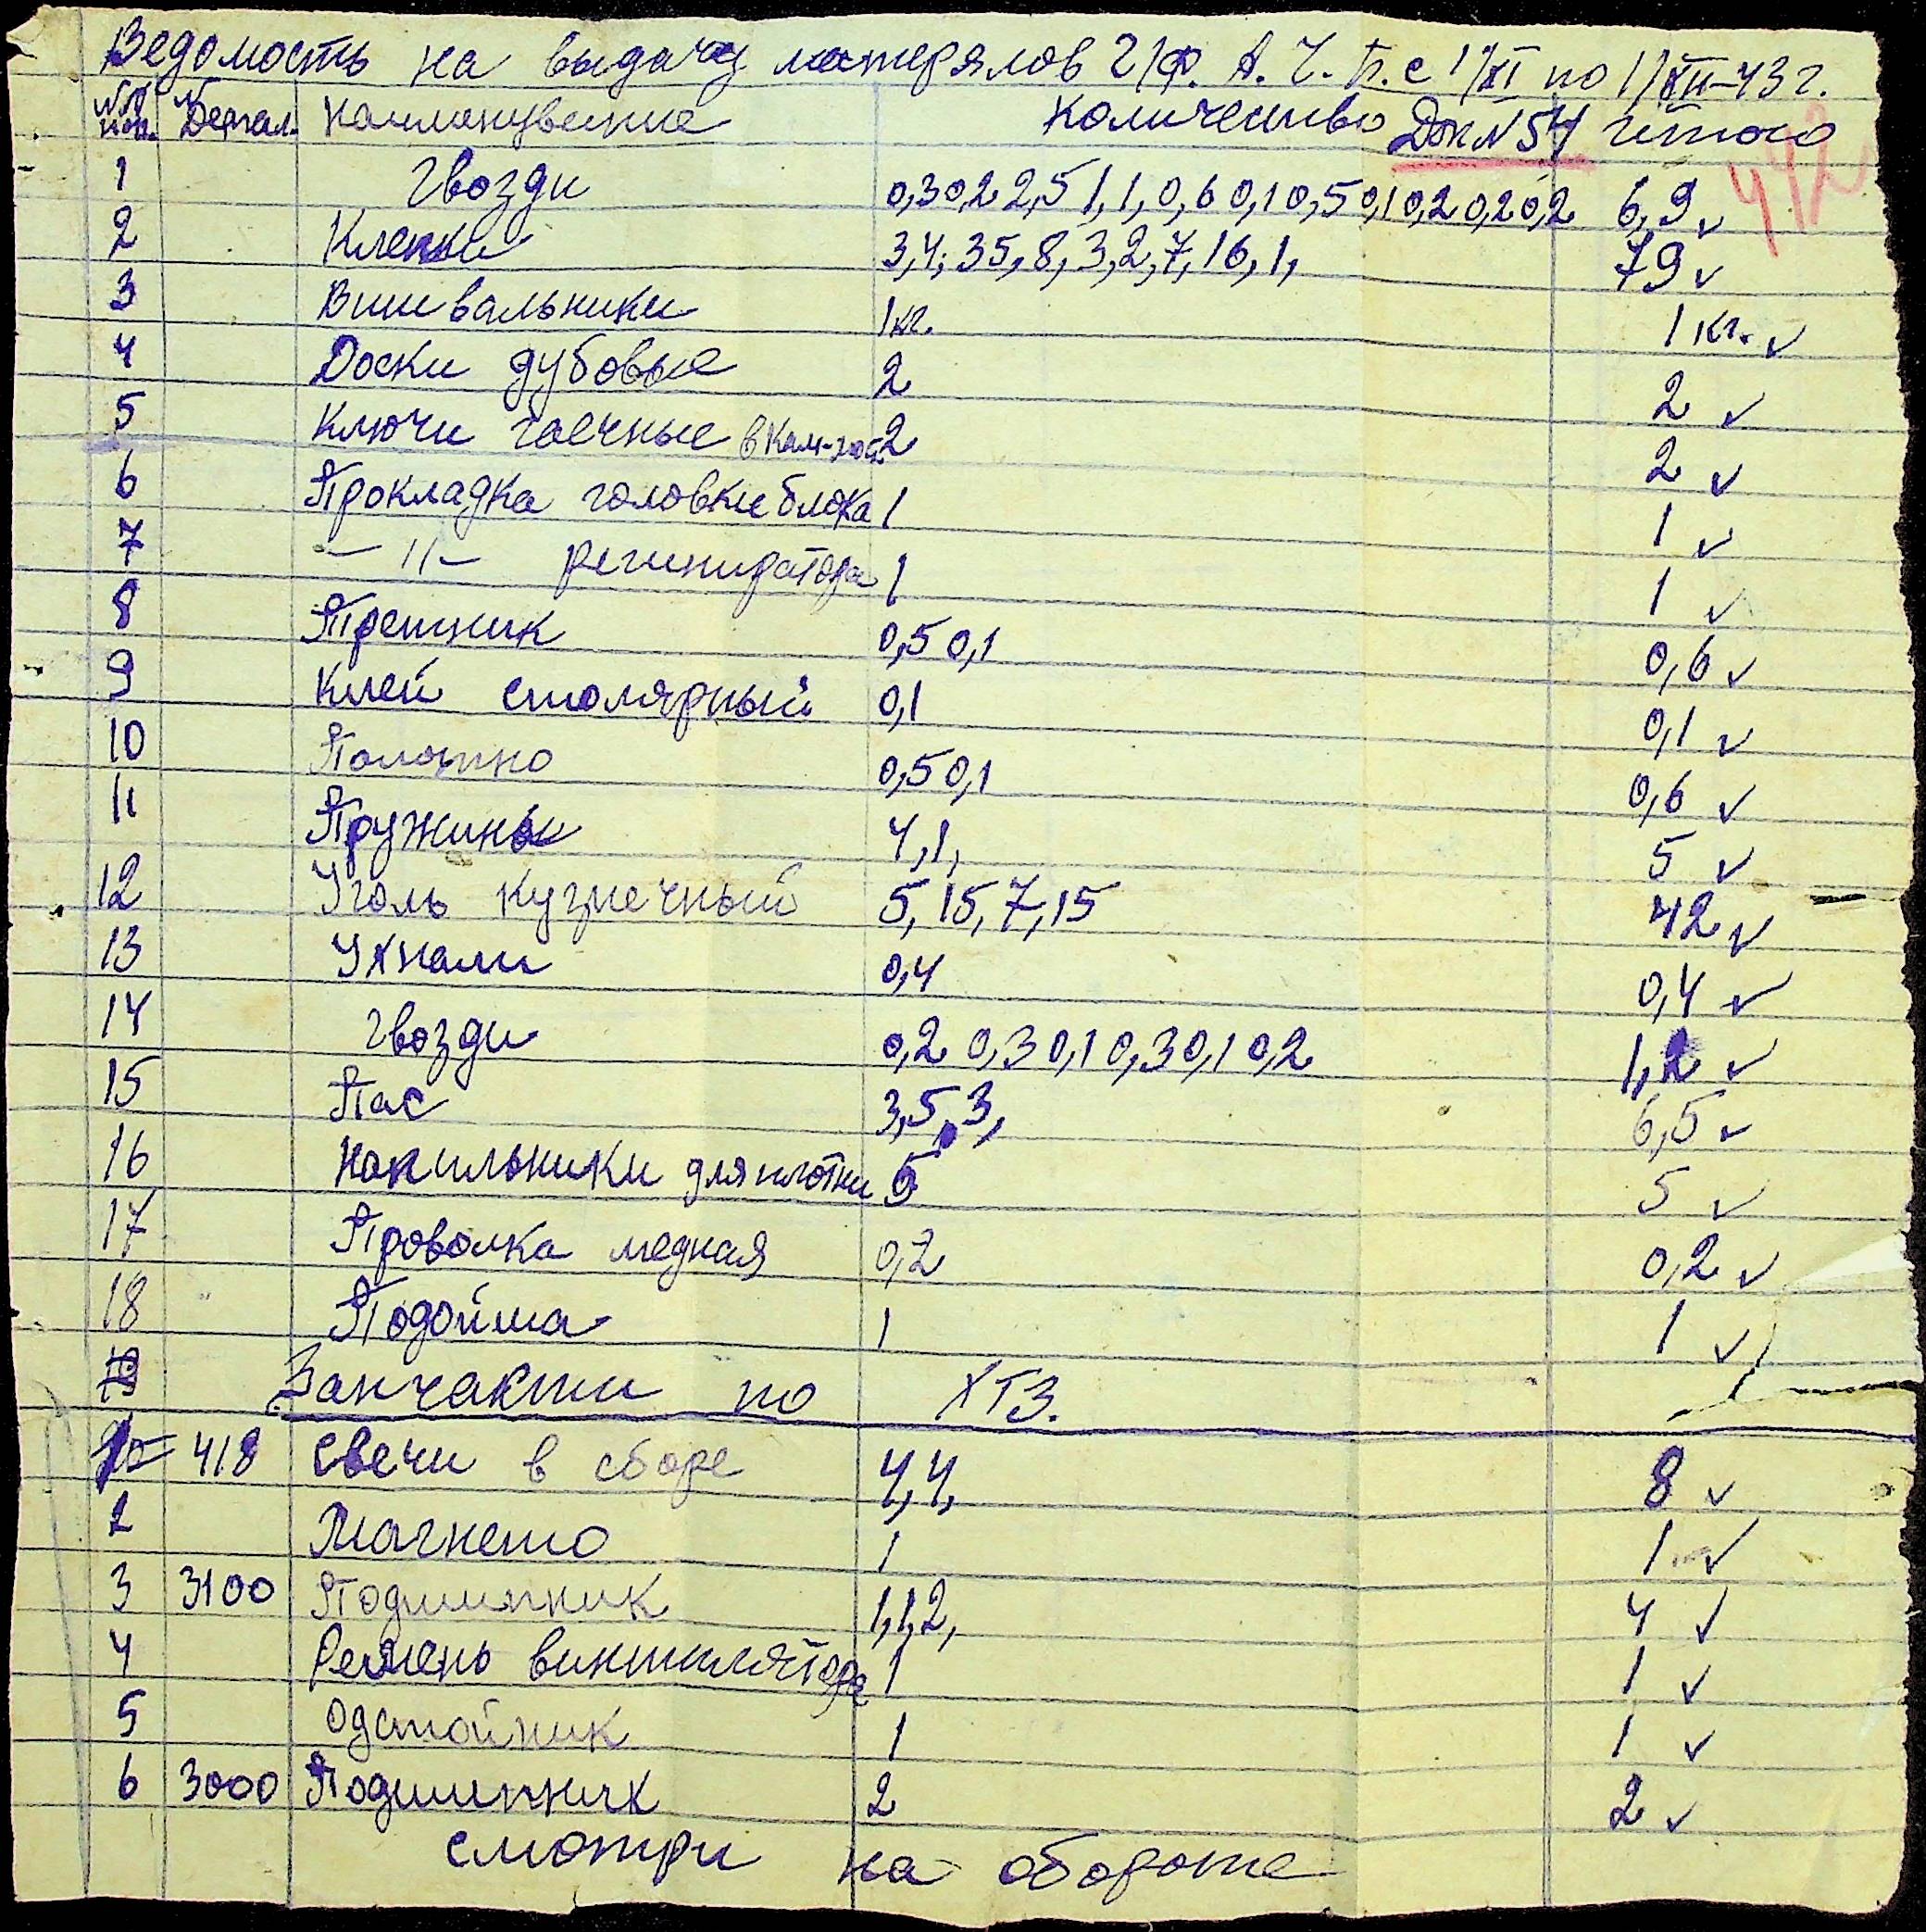 Ведомость на выдачу матерялов 2/Ф. А. Ч. Б. с 1/XI по 1/XII-43 г.
№№ п/п. № Детал. Наименувение Количество Док N 54 итого
442
1 Гвозди 0,3 0,2 2,5 1, 1, 0,6 0,1 0,5 0,1 0,2 0,2 0,2 6,9 ✓
2 Клепки 3, 4, 35, 8, 3, 2, 7, 16, 1, 79 ✓
3 Вшивальники 1 кг. 1 кг. ✓
4 Доски дубовые 2 2 ✓
5 Ключи гаечные 2 2 ✓
6 Прокладка головки блока 1 1 ✓
7 — 11 — региниратора 1 1 ✓
8 Третник 0,5 0,1 0,6 ✓
9 Клей столярный 0,1 0,1 ✓
10 Полотно 0,5 0,1 0,6 ✓
11 Пружины 4, 1, 5 ✓
12 Уголь кузнечный 5, 15, 7, 15 42 ✓
13 Ухнали 0,4 0,4 ✓
14 Гвозди 0,2 0,3 0,1 0,3 0,1 0,2 1,2 ✓
15 Пас 3,5, 3, 6,5 ✓
16 Напильники для плотни 5 5 ✓
17 Проволка медная 0,2 0,2 ✓
18 Подойма 1 1 ✓
19 Запчасти по ХТЗ.
1 418 Свечи в сборе 4, 4, 8 ✓
2 Магнето 1 1 ✓
3 3100 Подшипник 1, 1, 2, 4 ✓
4 Ремень винтилятора 1 1 ✓
5 Одстойник 1 1 ✓
6 3000 Подшипник 2 2 ✓
смотри на обороте